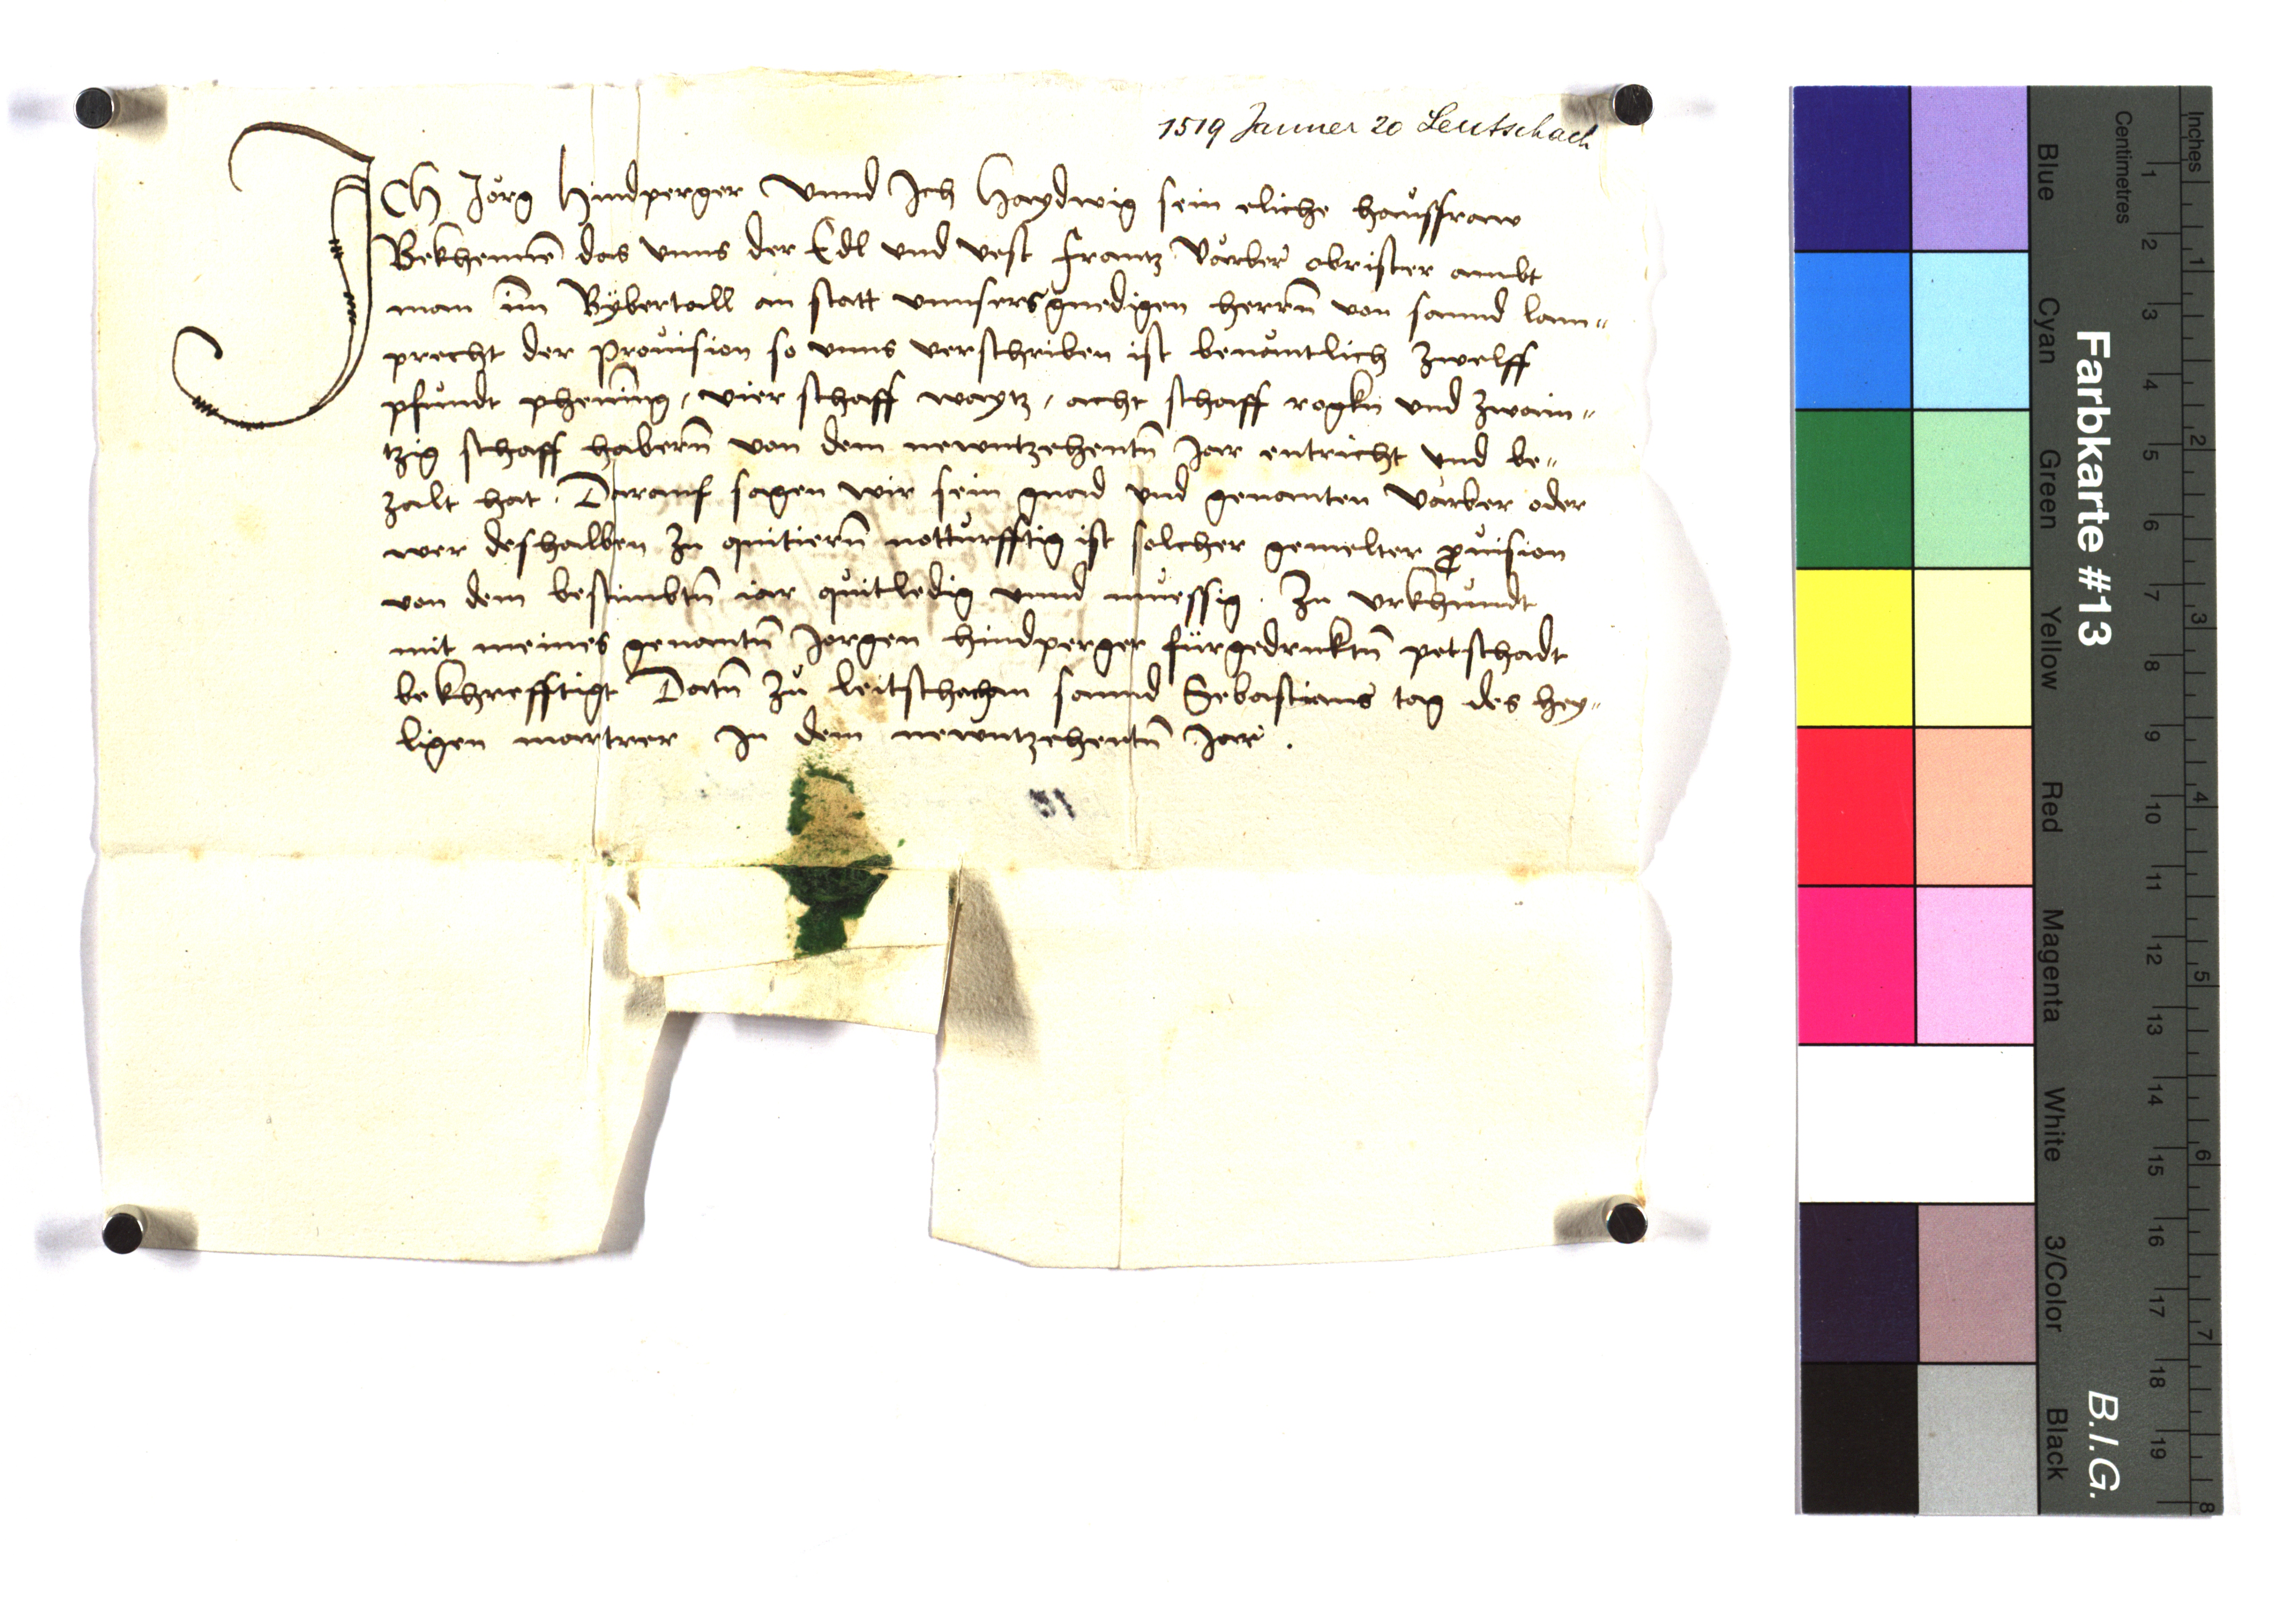 1519 Jänner 20 Leutschach
ICh Jörg Hindperger Vnnd Ich Haydwig sein eliche haůsfraw
Bekhennē das vnns der Edl vnd vest Frantz Vårber obrister ambt
man im̄ Vybertall an statt vnnsers gnedigen herrn̄ von sannd lam„
precht der Provision so vnns verschriben ist benomtlich zwelff
pfundt phennīng, vier schaff waytz, acht schaff rogkn vnd zwain„
tzig schaff habern̄ von dem newntzehentn̄ Jar entricht vnd be„
zalt hat. Darauf sagen wir sein gnad vnd genamten Vårber oder
wer deshalben zu quitiern̄ notturfftig ist solcher gemelter ꝓuision
von dem bestimbtn̄ iar quitledig vnnd müessig. Zu vrkhundt
mit meines genantn̄ Jorgen hindperger fürgedrucktn̄ petschadt
bekhrefftigt Datn̄ zů leitschach an sannd Sebastians tag des hey„
ligen martrer In dem newntzehentn̄ Jar.
Farbkarte #13
B.I.G.
Centimetres
Inches
Blue
Cyan
Green
Yellow
Red
Magenta
White
3/Color
Black
1 2 3 4 5 6 7 8 9 10 11 12 13 14 15 16 17 18 19
1 2 3 4 5 6 7 8